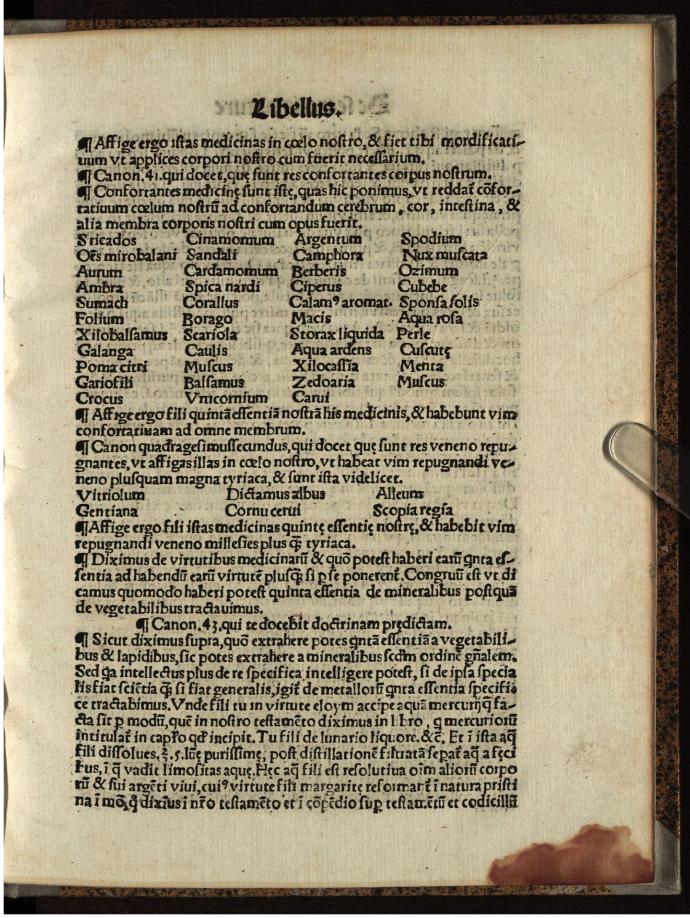 Libellus.
¶ Affige ergo istas medicinas in cœlo nostro, & fiet tibi mordificati-
uum vt applices corpori nostro cum fuerit necessarium.
¶ Canon.41. qui docet, quę sunt res confortantes corpus nostrum.
¶ Confortantes medicinę sunt istę, quas hic ponimus, vt reddāt cōfor-
tatiuum cœlum nostrū ad confortandum cerebrum, cor, intestina, &
alia membra corporis nostri cum opus fuerit.
Sticados Cinamomum Argentum Spodium
Oēs mirobalani Sandali Camphora Nux muscata
Aurum Cardamomum Berberis Ozimum
Ambra Spica nardi Ciperus Cubebe
Sumach Corallus Calamꝰ aromat. Sponsa solis
Folium Borago Macis Aqua rosa
Xilobalsamus Scariola Storax liquida Perle
Galanga Caulis Aqua ardens Cuscutę
Poma citri Muscus Xilocassia Menta
Gariofili Balsamus Zedoaria Muscus
Crocus Vnicornium Carui
¶ Affige ergo fili quintā essentiā nostrā his medicinis, & habebunt vim
confortatiuam ad omne membrum.
¶ Canon quadragesimussecundus, qui docet quę sunt res veneno repu-
gnantes, vt affigas illas in cœlo nostro, vt habeat vim repugnandi ve-
neno plusquam magna tyriaca, & sunt ista videlicet.
Vitriolum Dictamus albus Alleum
Gentiana Cornu cerui Scopia regia
¶ Affige ergo fili istas medicinas quintę essentię nostrę, & habebit vim
repugnandi veneno millesies plus q̄ tyriaca.
¶ Diximus de virtutibus medicinarū & quō potest haberi earū qnta es-
sentia ad habendū earū virtutē plusq̄ si p se ponerent. Congruū est vt di
camus quomodo haberi potest quinta essentia de mineralibus postquā
de vegetabilibus tractauimus.
¶ Canon.43. qui te docebit doctrinam prędictam.
¶ Sicut diximus supra, quō extrahere potes qntā essentiā a vegetabili-
bus & lapidibus, sic potes extrahere a mineralibus scdm ordinē gñalem.
Sed qa intellectus plus de re specifica intelligere potest, si de ipsa specia
lis fiat sciētia q̄ si fiat generalis, igit̄ de metallorū qnta essentia specifi
ce tractabimus. Vnde fili tu in virtute eloym accipe aquā mercurij q̄ fa-
cta sit p modū, quē in nostro testamēto diximus in libro, q mercuriorū
intitulat̄ in capło qd̄ incipit. Tu fili de lunario liquore. &c̄. Et ī ista aq̄
fili dissolues.℥.5. lūę purissimę, post distillationē filtratā sepat̄ aq̄ a fęci
bus, ī q̄ vadit limositas aquę. Hęc aq̄ fili est resolutiua oīm aliorū corpo
rū & sui argēti viui, cuiꝰ virtute fili margaritę reformant̄ ī natura pristi
na ī mō, q̄ diximꝰ ī nr̄o testamēto et ī cōpēdio sup testamētū et codicillū